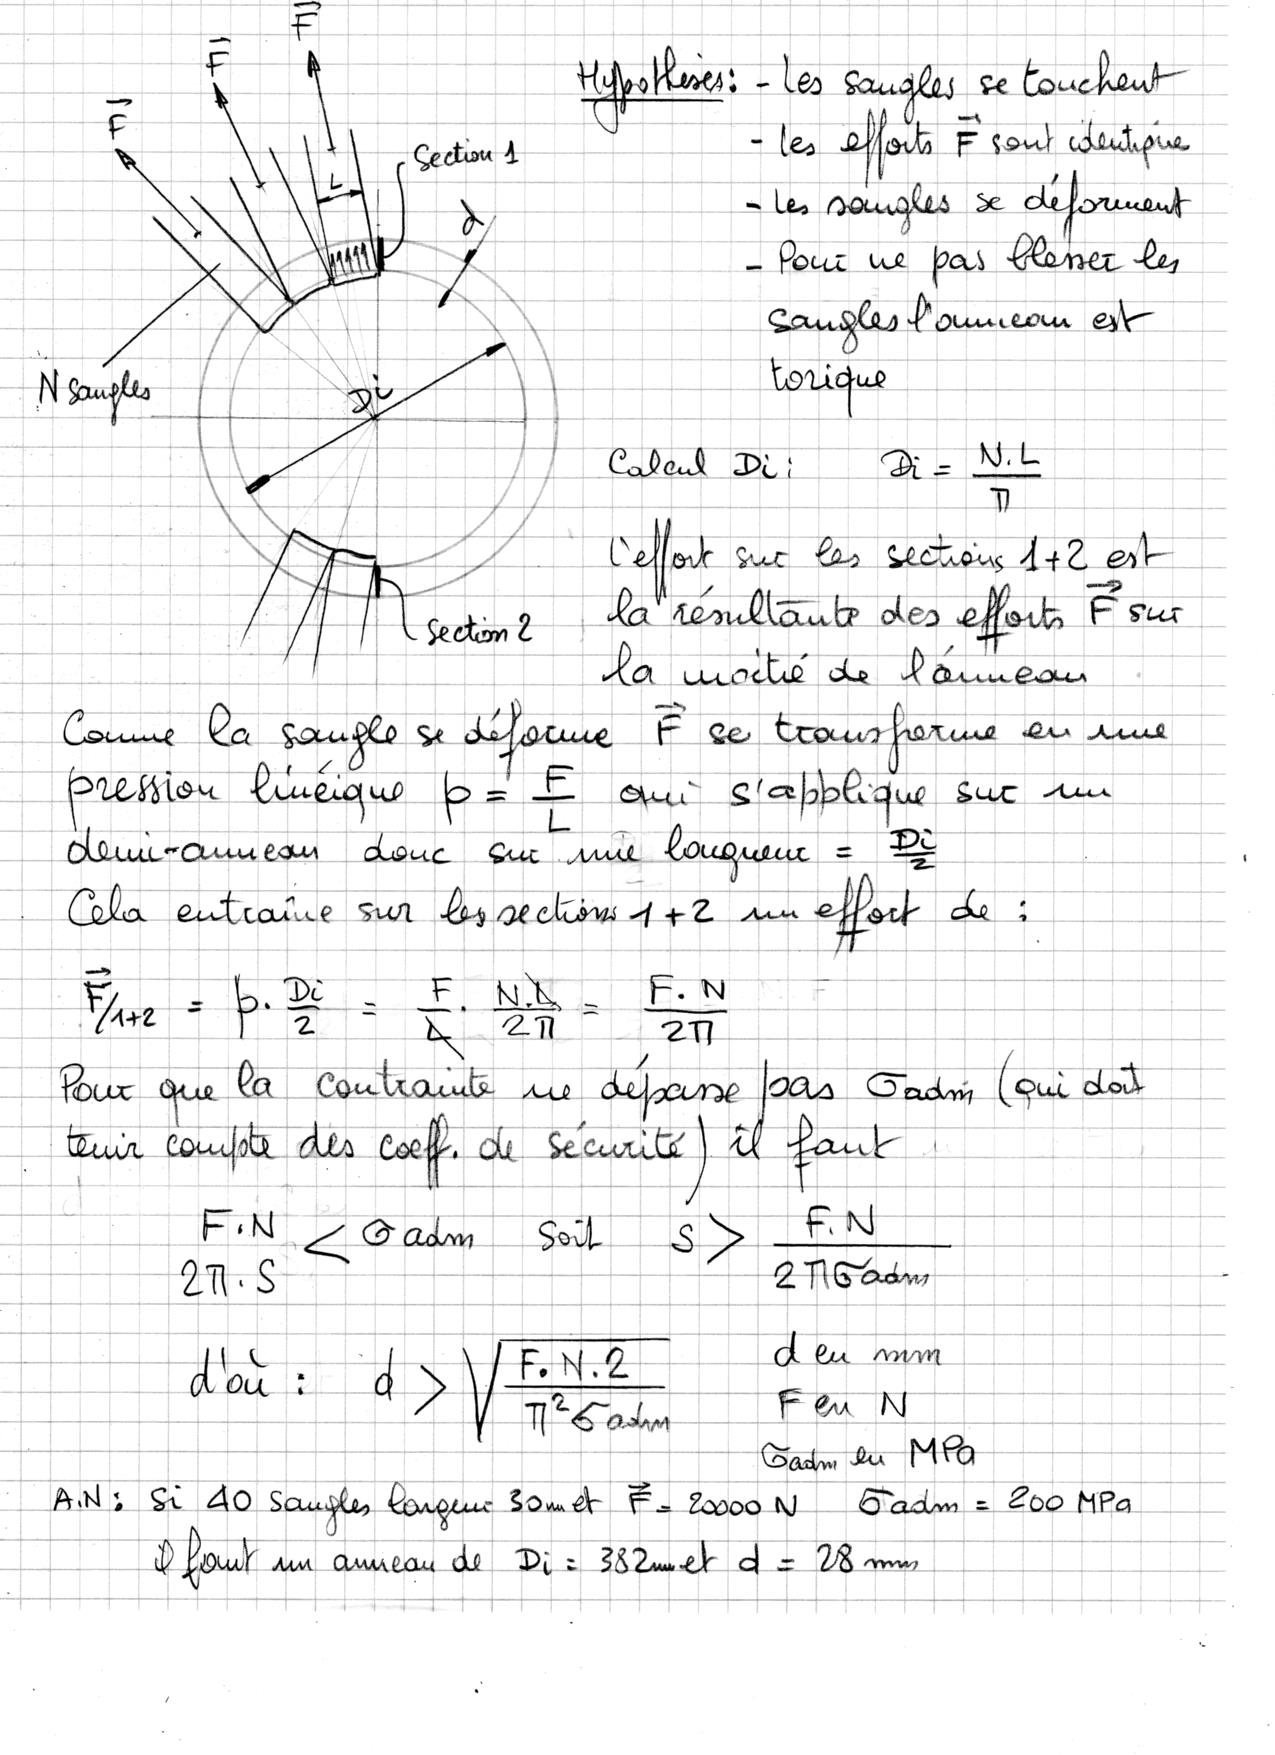 F
F
F
Section 1
L
d
N sangles
Di
Section 2
Hypothèses: - Les sangles se touchent
- les efforts F sont identique
- les sangles se déforment
- Pour ne pas blesser les
sangles l'anneau est
torique
Calcul Di: Di = N.L / π
l'effort sur les sections 1+2 est
la résultante des efforts F sur
la moitié de l'anneau
Comme la sangle se déforme F se transforme en une
pression linéique p = F / L qui s'applique sur un
demi-anneau donc sur une longueur = Di / 2
Cela entraîne sur les sections 1+2 un effort de :
F/1+2 = p. Di / 2 = F / L . N.L / 2π = F.N / 2π
Pour que la contrainte ne dépasse pas σadm (qui doit
tenir compte des coeff. de sécurité) il faut
F.N / 2π.S < σadm soit S > F.N / 2πσadm
d'où : d > √ F.N.2 / π²σadm
d en mm
F en N
σadm en MPa
A.N: Si 40 sangles largeur 30mm et F = 20000 N σadm = 200 MPa
il faut un anneau de Di = 382mm et d = 28 mm